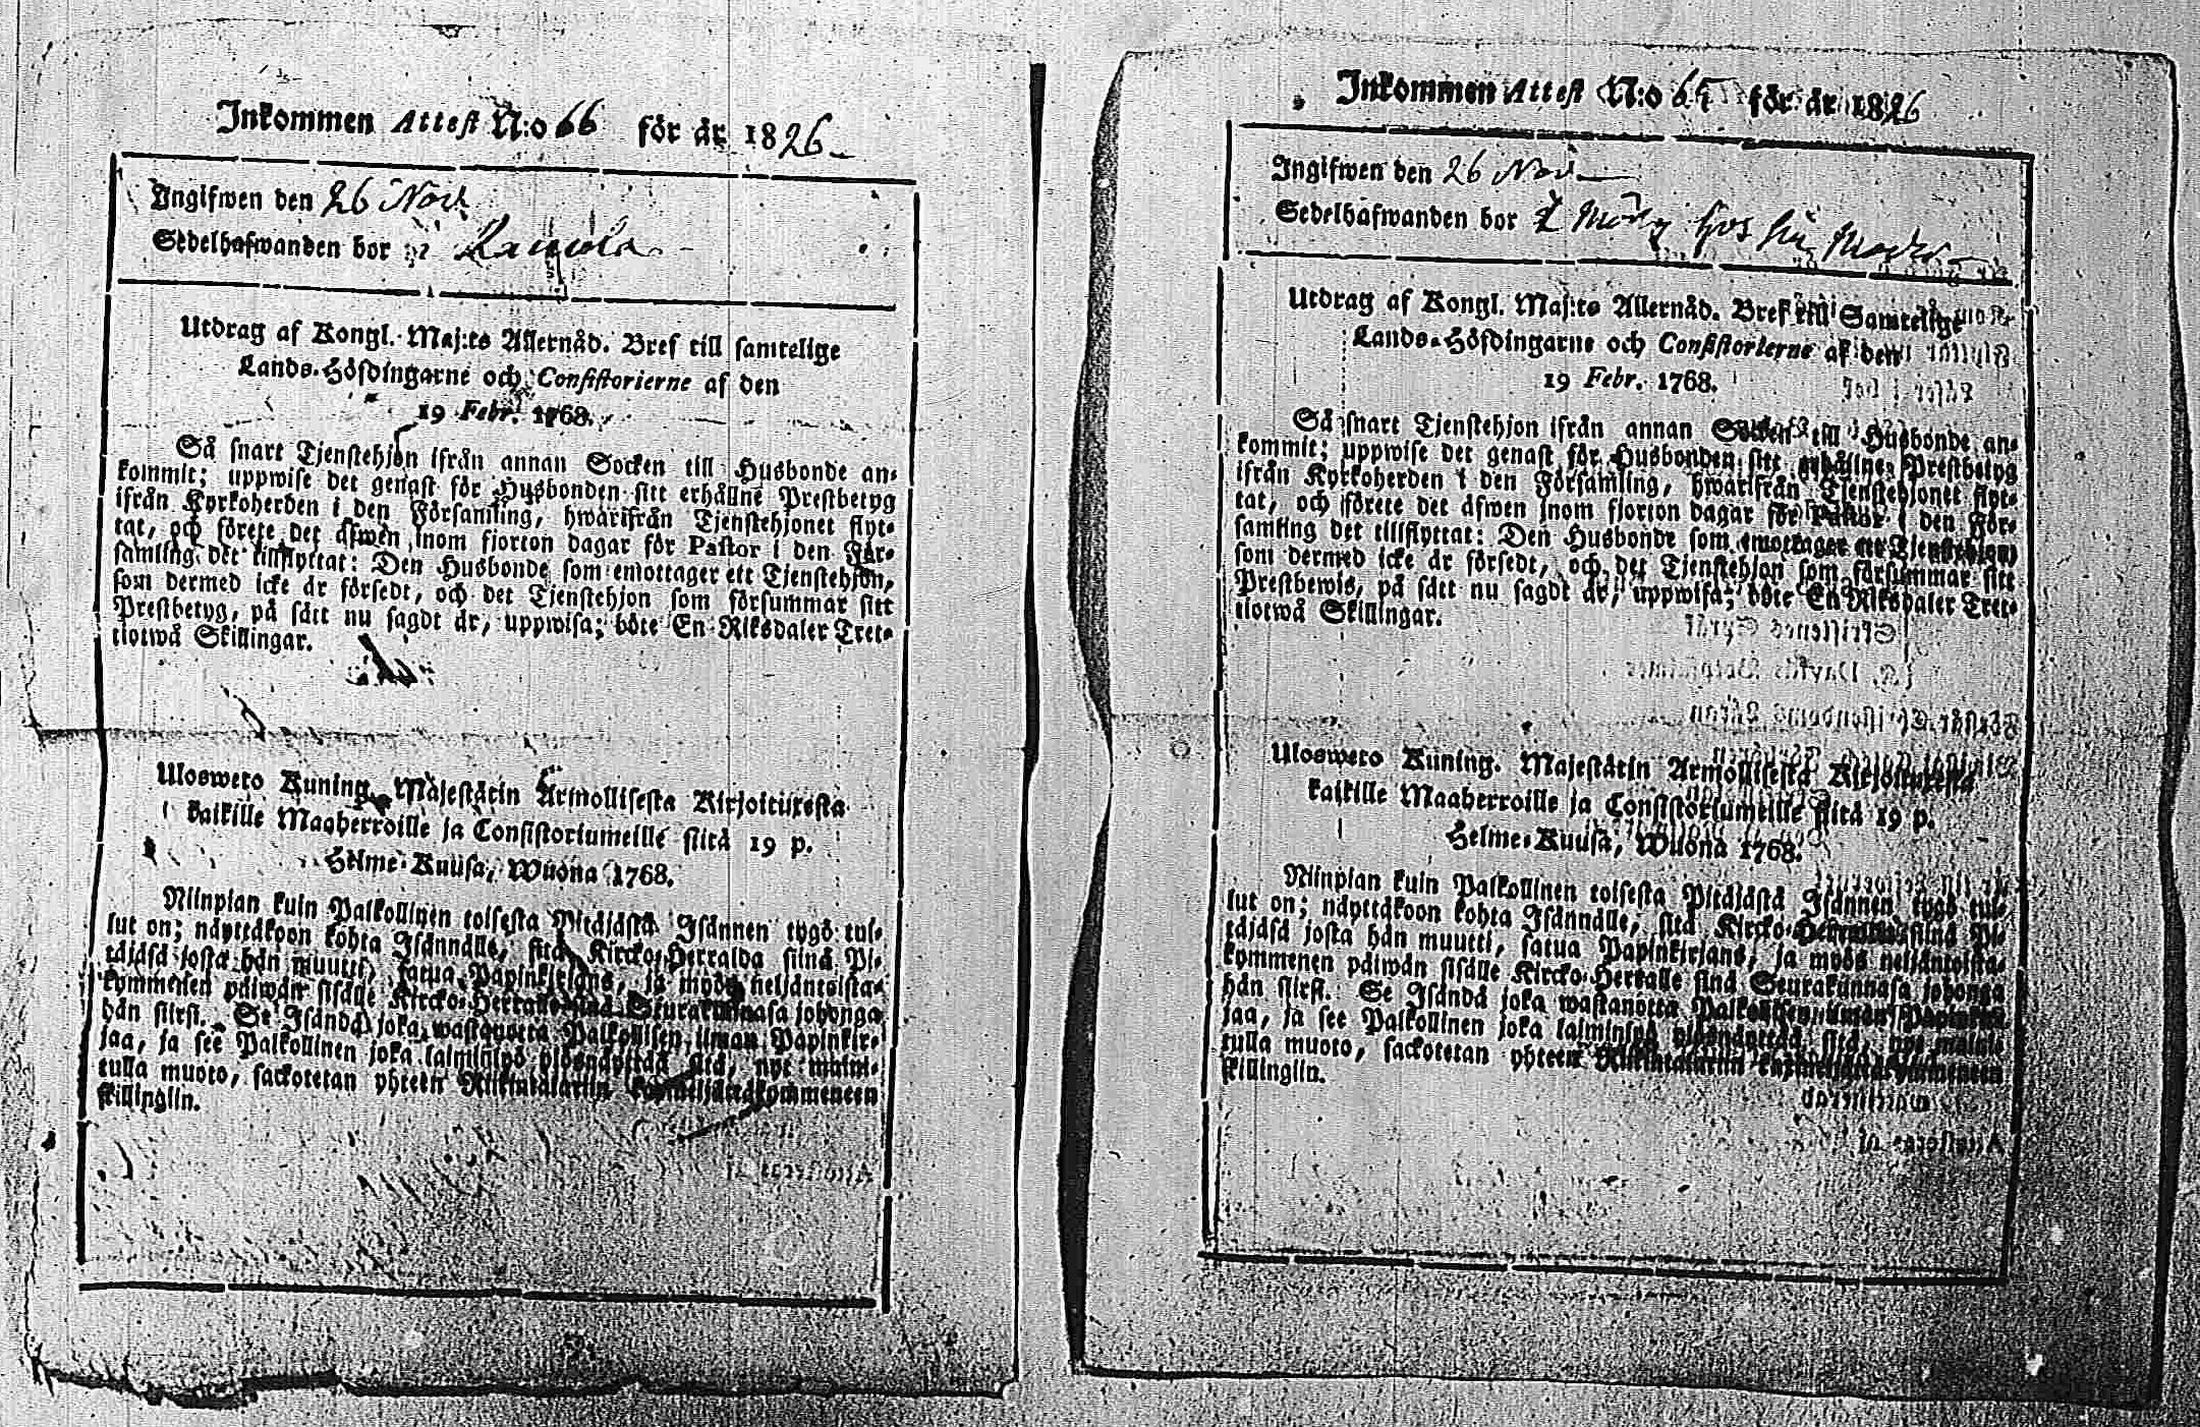 Inkommen Attest N:o 66 för år 1826
Ingifwen den 26 Nov
Sedelhafwanden bor i
Utdrag af Kongl. Maj:ts Allernåd. Bref till samtelige
Lands-Höfdingarne och Consistorierne af den
19 Febr. 1768.
Så snart Tjenstehjon ifrån annan Socken till Husbonde an-
kommit; uppwise det genast för Husbonden sitt erhållne Prestbetyg
ifrån Kyrkoherden i den Församling, hwarifrån Tjenstehjonet flyt-
tat, och förete det äfwen inom fjorton dagar för Pastor i den För-
samling det tillflyttat: Den Husbonde som emottager ett Tjenstehjon,
som dermed icke är försedt, och det Tjenstehjon som försummar sitt
Prestbetyg, på sätt nu sagdt är, uppwisa; böte En Riksdaler Tret-
tiotwå Skillingar.
Ulosweto Kuning. Majestätin Armollisesta Kirjoituxesta
kaikille Maaherroille ja Consistoriumeille siitä 19 p.
Helme-Kuusa, Wuona 1768.
Niinpian kuin Palkollinen toisesta Pitäjästä Isännen tygö tul-
lut on; näyttäkoon kohta Isännälle, sitä Kircko-Herralda siinä Pi-
täjäsä josta hän muutti, saatua Papinkirjans, ja myös neljäntoista-
kymmenen päiwän sisälle Kircko-Herralle siinä Seurakunnasa johonga
hän siirsi. Se Isändä joka wastanotta Palkollisen ilman Papinkir-
jaa, ja see Palkollinen joka laiminlyö ylösnäyttää sitä, nyt maini-
tulla muoto, sackotetan yhteen Riikintalariin kahteneljättäkymmeneen
skillingiin.
Inkommen Attest N:o 65 för år 1826
Ingifwen den 26 Nov
Sedelhafwanden bor i hos sin Moder
Utdrag af Kongl. Maj:ts Allernåd. Bref till Samtelige
Lands-Höfdingarne och Consistorierne af den
19 Febr. 1768.
Så snart Tjenstehjon ifrån annan Socken till Husbonde an-
kommit; uppwise det genast för Husbonden sitt erhållne Prestbetyg
ifrån Kyrkoherden i den Församling, hwarifrån Tjenstehjonet flyt-
tat, och förete det äfwen inom fjorton dagar för Pastor i den För-
samling det tillflyttat: Den Husbonde som emottager ett Tjenstehjon,
som dermed icke är försedt, och det Tjenstehjon som försummar sitt
Prestbewis, på sätt nu sagdt är, uppwisa; böte En Riksdaler Tret-
tiotwå Skillingar.
Ulosweto Kuning. Majestätin Armollisesta Kirjoituxesta
kaikille Maaherroille ja Consistoriumeille siitä 19 p.
Helme-Kuusa, Wuona 1768.
Niinpian kuin Palkollinen toisesta Pitäjästä Isännen tygö tul-
lut on; näyttäkoon kohta Isännälle, sitä Kircko-Herralda siinä Pi-
täjäsä josta hän muutti, saatua Papinkirjans, ja myös neljäntoista-
kymmenen päiwän sisälle Kircko-Herralle siinä Seurakunnasa johonga
hän siirsi. Se Isändä joka wastanotta Palkollisen ilman Papinkir-
jaa, ja see Palkollinen joka laiminlyö ylösnäyttää sitä, nyt maini-
tulla muoto, sackotetan yhteen Riikintalariin kahteneljättäkymmeneen
skillingiin.